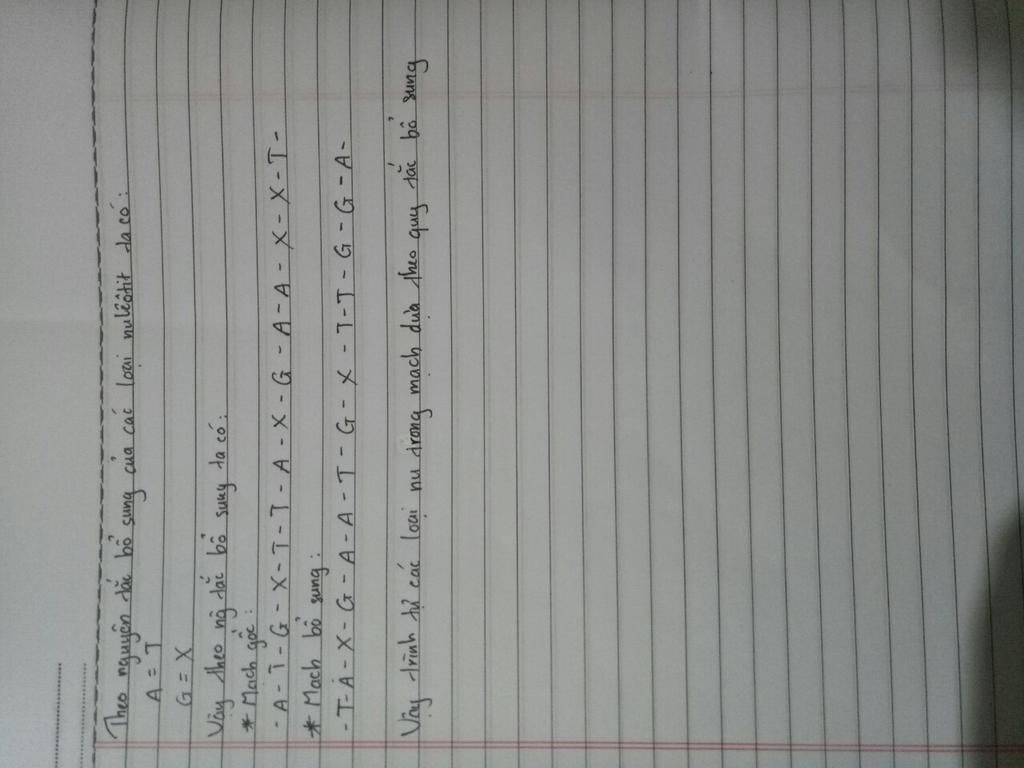 Theo nguyên tắc bổ sung của các loại nuclêôtit ta có:
A = T
G = X
Vậy theo ng tắc bổ sung ta có:
* Mạch gốc:
- A - T - G - X - T - T - A - X - G - A - A - X - X - T -
* Mạch bổ sung:
- T - A - X - G - A - A - T - G - X - T - T - G - G - A -
Vậy trình tự các loại nu trong mạch dựa theo quy tắc bổ sung